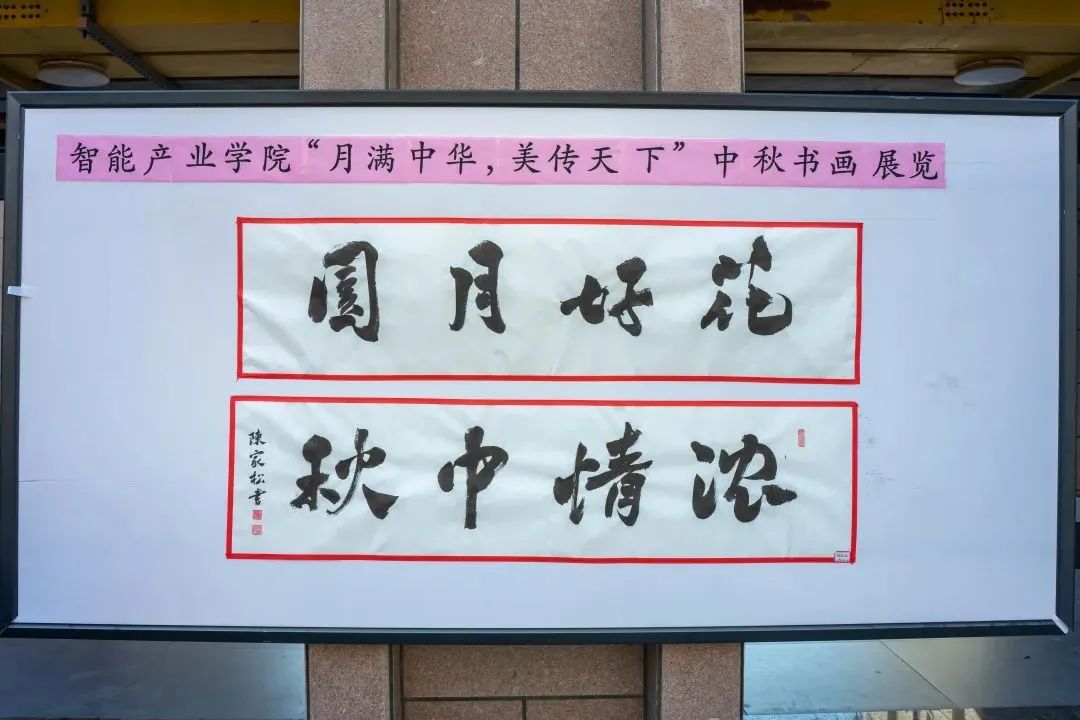 智能产业学院“月满中华,美传天下”中秋书画展览
花好月圆
浓情中秋
陳家松書